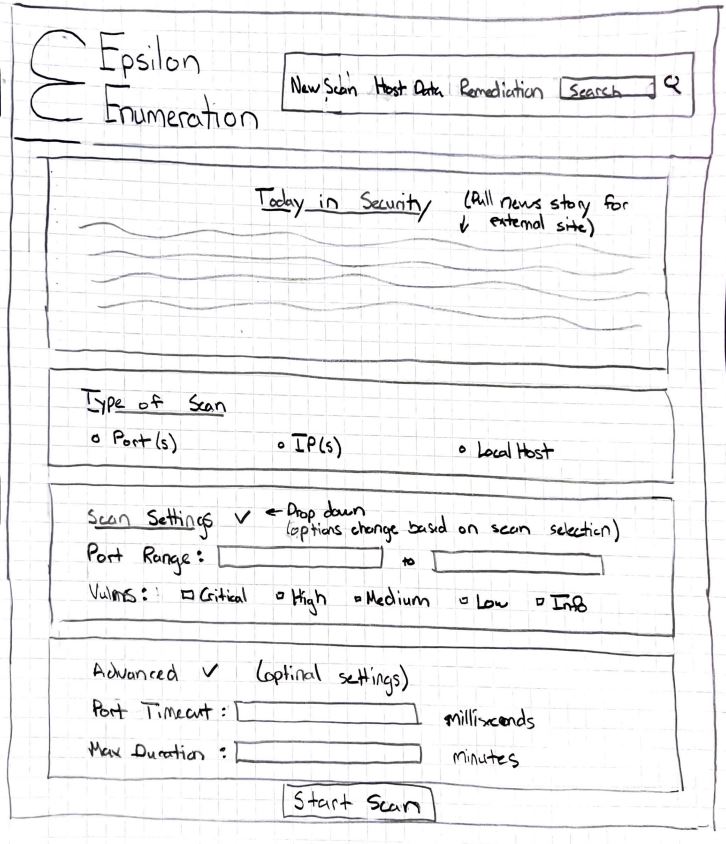 Epsilon
Enumeration
New Scan Host Data Remediation Search
Today in Security
(Pull news story for
↓ external site)
Type of Scan
Port(s) IP(s) Local Host
Scan Settings ✓ ← Drop down
(options change based on scan selection)
Port Range: to
Vulns: Critical High Medium Low Info
Advanced ✓ (optinal settings)
Port Timeout: milliseconds
Max Duration: minutes
Start Scan